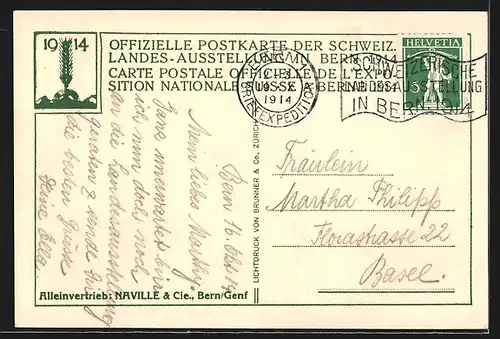 1914
OFFIZIELLE POSTKARTE DER SCHWEIZ.
LANDES-AUSSTELLUNG IN BERN 1914
CARTE POSTALE OFFICIELLE DE L'EXPO-
SITION NATIONALE SUISSE A BERNE 1914
HELVETIA
5
BERN
X
1914
BRIEFEXPEDITION
SCHWEIZERISCHE
LANDESAUSSTELLUNG
IN BERN 1914
Bern 16. Okt. 14
Mein liebes Marthy.
Ganz unerwartet bin
ich nun doch noch
an die Landesausstellung
geraten & sende Dir
die besten Grüsse
Deine Ella.
LICHTDRUCK VON BRUNNER & Co., ZÜRICH
Fräulein
Martha Philipp
Florastrasse 22
Basel.
Alleinvertrieb: NAVILLE & Cie., Bern/Genf